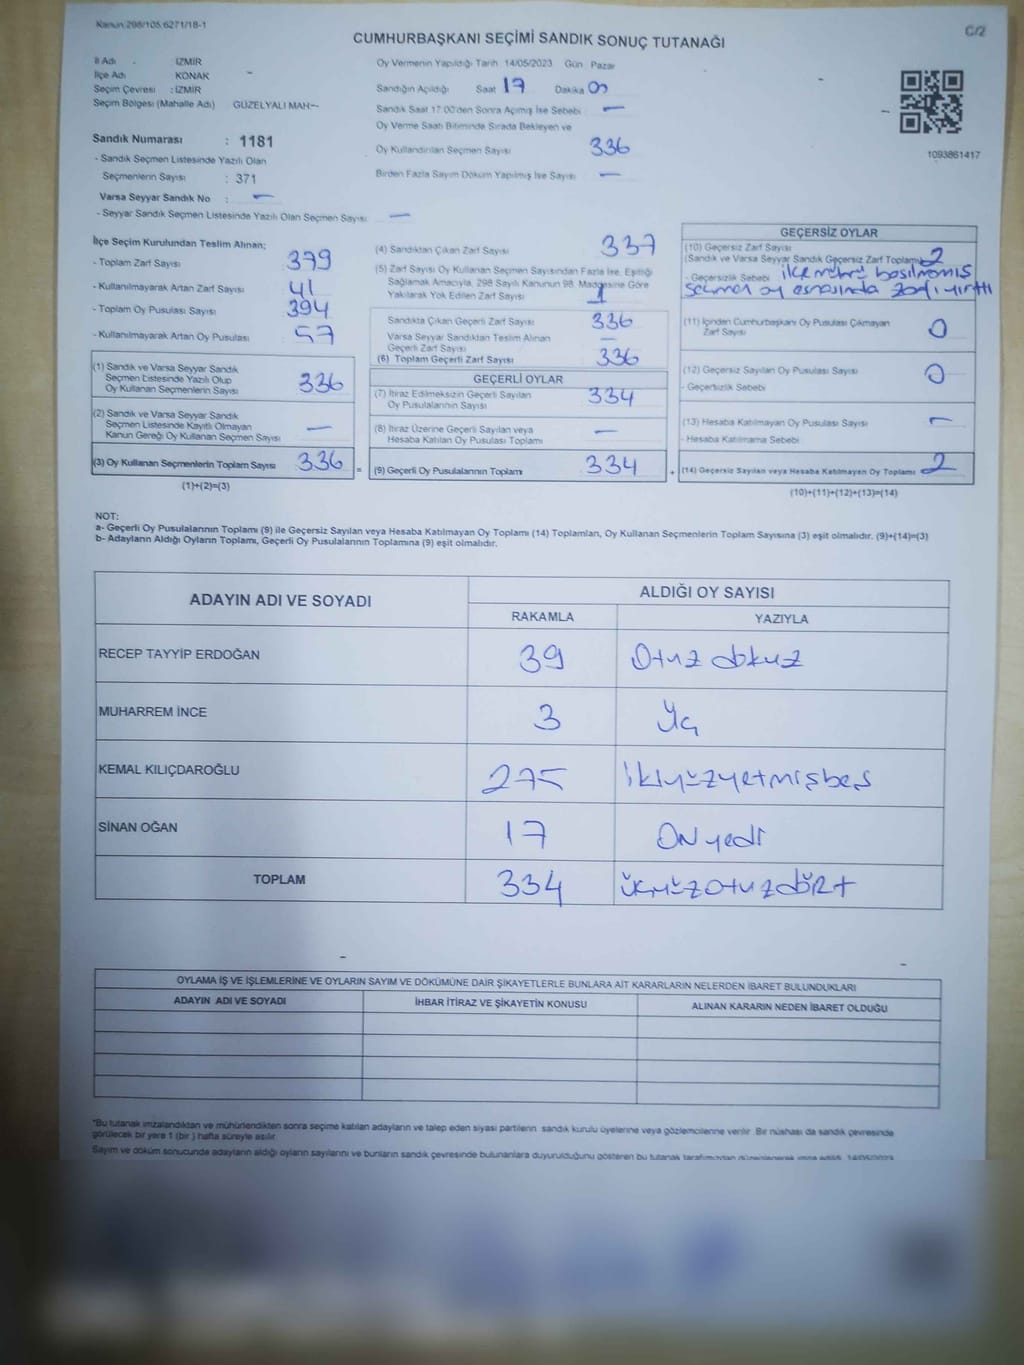 Kanun:298/105,6271/18-1
C/2
CUMHURBAŞKANI SEÇİMİ SANDIK SONUÇ TUTANAĞI
İl Adı : İZMİR
İlçe Adı : KONAK
Seçim Çevresi : İZMİR
Seçim Bölgesi (Mahalle Adı) GÜZELYALI MAH
Oy Vermenin Yapıldığı Tarih 14/05/2023 Gün Pazar
Sandığın Açıldığı Saat 17 Dakika 00
Sandık Saat 17:00'den Sonra Açılmış İse Sebebi —
Oy Verme Saati Bitiminde Sırada Bekleyen ve
Oy Kullandırılan Seçmen Sayısı 336
Birden Fazla Sayım Döküm Yapılmış İse Sayısı —
1093861417
Sandık Numarası : 1181
- Sandık Seçmen Listesinde Yazılı Olan
Seçmenlerin Sayısı : 371
Varsa Seyyar Sandık No : —
- Seyyar Sandık Seçmen Listesinde Yazılı Olan Seçmen Sayısı: —
İlçe Seçim Kurulundan Teslim Alınan;
- Toplam Zarf Sayısı 379
- Kullanılmayarak Artan Zarf Sayısı 41
- Toplam Oy Pusulası Sayısı 394
- Kullanılmayarak Artan Oy Pusulası 57
(1) Sandık ve Varsa Seyyar Sandık
Seçmen Listesinde Yazılı Olup
Oy Kullanan Seçmenlerin Sayısı 336
(2) Sandık ve Varsa Seyyar Sandık
Seçmen Listesinde Kayıtlı Olmayan
Kanun Gereği Oy Kullanan Seçmen Sayısı —
(3) Oy Kullanan Seçmenlerin Toplam Sayısı 336
(1)+(2)=(3)
(4) Sandıktan Çıkan Zarf Sayısı 337
(5) Zarf Sayısı Oy Kullanan Seçmen Sayısından Fazla İse, Eşitliği
Sağlamak Amacıyla, 298 Sayılı Kanunun 98. Maddesine Göre
Yakılarak Yok Edilen Zarf Sayısı 1
Sandıkta Çıkan Geçerli Zarf Sayısı 336
Varsa Seyyar Sandıktan Teslim Alınan
Geçerli Zarf Sayısı —
(6) Toplam Geçerli Zarf Sayısı 336
GEÇERLİ OYLAR
(7) İtiraz Edilmeksizin Geçerli Sayılan
Oy Pusulalarının Sayısı 334
(8) İtiraz Üzerine Geçerli Sayılan veya
Hesaba Katılan Oy Pusulası Toplamı —
= (9) Geçerli Oy Pusulalarının Toplamı 334
GEÇERSİZ OYLAR
(10) Geçersiz Zarf Sayısı
(Sandık ve Varsa Seyyar Sandık Geçersiz Zarf Toplamı) 2
- Geçersizlik Sebebi ilçe mührü basılmamış
seçmen oy esnasında zarfı yırttı
(11) İçinden Cumhurbaşkanı Oy Pusulası Çıkmayan
Zarf Sayısı 0
(12) Geçersiz Sayılan Oy Pusulası Sayısı 0
- Geçersizlik Sebebi
(13) Hesaba Katılmayan Oy Pusulası Sayısı —
- Hesaba Katılmama Sebebi
+ (14) Geçersiz Sayılan veya Hesaba Katılmayan Oy Toplamı 2
(10)+(11)+(12)+(13)=(14)
NOT:
a- Geçerli Oy Pusulalarının Toplamı (9) ile Geçersiz Sayılan veya Hesaba Katılmayan Oy Toplamı (14) Toplamları, Oy Kullanan Seçmenlerin Toplam Sayısına (3) eşit olmalıdır. (9)+(14)=(3)
b- Adayların Aldığı Oyların Toplamı, Geçerli Oy Pusulalarının Toplamına (9) eşit olmalıdır.
ADAYIN ADI VE SOYADI
ALDIĞI OY SAYISI
RAKAMLA YAZIYLA
RECEP TAYYİP ERDOĞAN 39 Otuz dokuz
MUHARREM İNCE 3 Üç
KEMAL KILIÇDAROĞLU 275 ikiyüzyetmişbeş
SİNAN OĞAN 17 ON yedi
TOPLAM 334 üçyüzotuzdört
OYLAMA İŞ VE İŞLEMLERİNE VE OYLARIN SAYIM VE DÖKÜMÜNE DAİR ŞİKAYETLERLE BUNLARA AİT KARARLARIN NELERDEN İBARET BULUNDUKLARI
ADAYIN ADI VE SOYADI İHBAR İTİRAZ VE ŞİKAYETİN KONUSU ALINAN KARARIN NEDEN İBARET OLDUĞU
*Bu tutanak imzalandıktan ve mühürlendikten sonra seçime katılan adayların ve talep eden siyasi partilerin sandık kurulu üyelerine veya gözlemcilerine verilir. Bir nüshası da sandık çevresinde
görülecek bir yere 1 (bir) hafta süreyle asılır.
Sayım ve döküm sonucunda adayların aldığı oyların sayılarını ve bunların sandık çevresinde bulunanlara duyurulduğunu gösteren bu tutanak tarafımızdan düzenlenerek imza edildi. 14/05/2023